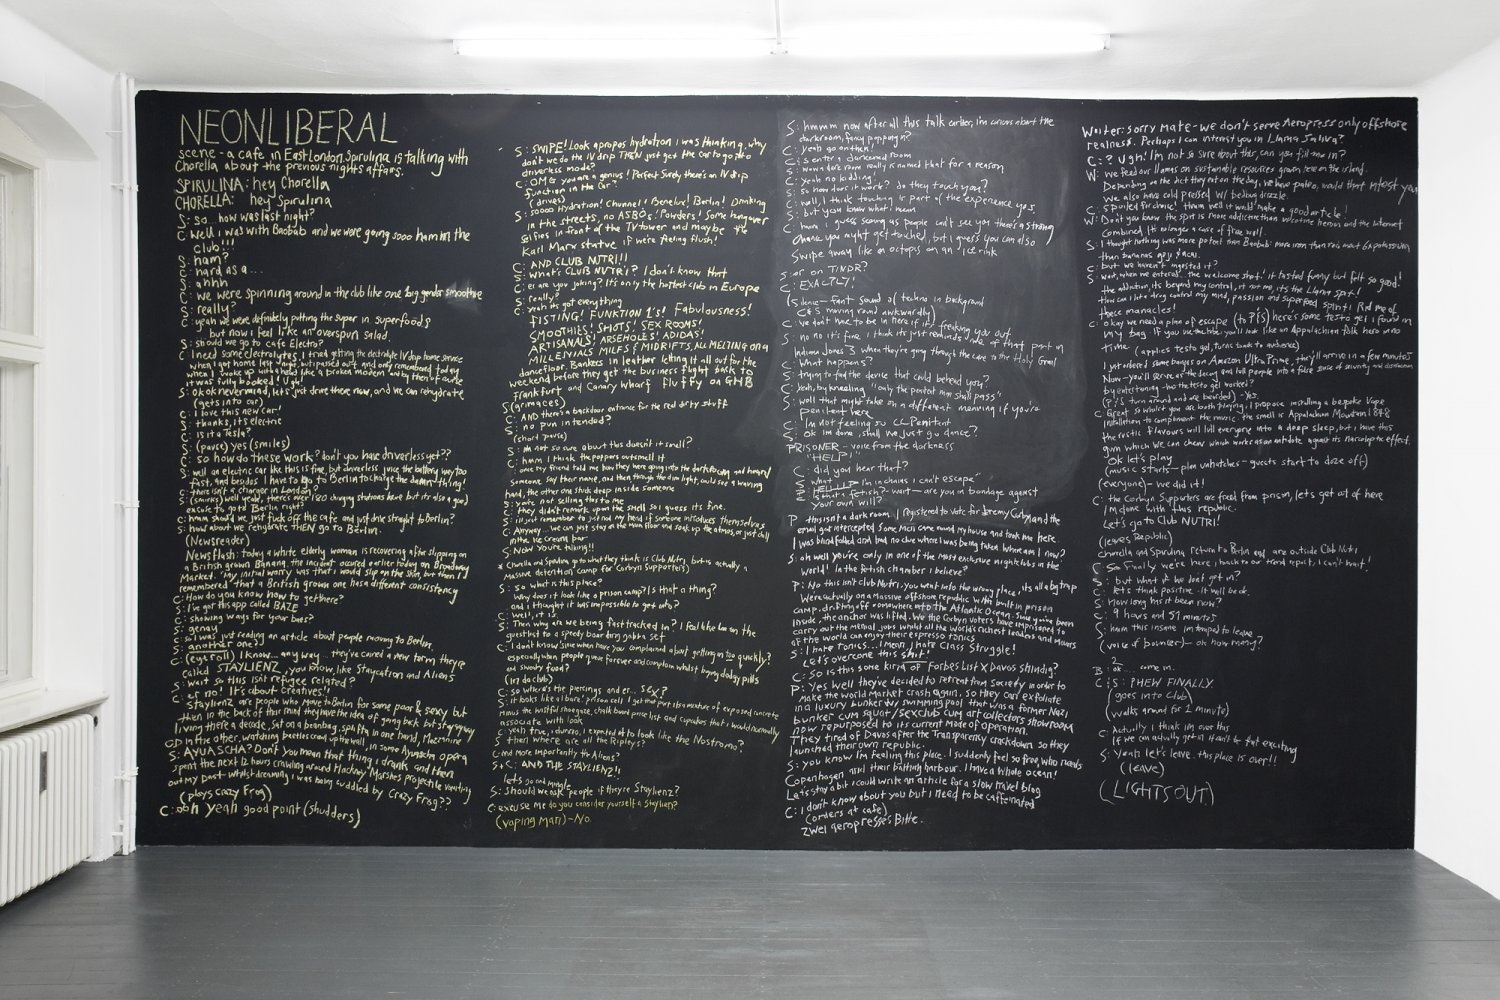 NEONLIBERAL
scene - a cafe in East London Spirulina is talking with
Chorella about the previous nights affairs.
SPIRULINA: hey Chorella
CHORELLA: hey Spirulina
S: so... how was last night?
C: well I was with Baobab and we were going sooo ham in the
club!!!
S: ham?
C: hard as a...
S: ahhh
C: we were spinning around in the club like one big gender smoothie
S: really?
C: yeah we were definitely putting the super in superfoods
but now i feel like an overspun salad.
S: should we go to cafe Electro?
C: I need some electrolytes, I tried getting the electrolyte IV drip home service
when I got home last night, but passed out and only remembered today
when I woke up with a head like a broken modem and by then of course
it was fully booked! Ugh!
S: ok ok nevermind, lets just drive there now, and we can rehydrate
(gets into car)
C: I love this new car!
S: thanks, its electric
C: is it a Tesla?
S: (pause) yes (smiles)
C: so how do these work? don't you have driverless yet??
S: well an electric car like this is fine, but driverless juice the battery way too
fast, and besides I have to go to Berlin to charge the damn thing!
C: there isn't a charger in London?
S: (smirks) well yeah, there's over 180 charging stations here but its also a good
excuse to go to Berlin right?
C: hmm should we just fuck off the cafe and just drive straight to Berlin?
S: how about we rehydrate THEN go to Berlin.
(Newsreader)
Newsflash: today a white elderly woman is recovering after slipping on
a British grown Banana, the incident occured earlier today on Broadway
Market. "My initial worry was that I would slip on the skin, but then I
remembered that a British grown one has a different consistency
C: How do you know how to get there?
S: I've got this app called BAZE
C: showing ways for baes?
S: genau
C: so I was just reading an article about people moving to Berlin.
S: another one?
C: (eyeroll) I know... any way... they've coined a new term they're
called STAYLIENZ, you know like Staycation and Aliens
S: wait so this isn't refugee related?
C: er no! It's about creatives!!
C: Staylienz are people who move to Berlin for some poor & sexy but
then in the back of their mind they have the idea of going back but stay
living there a decade, sat on a beanbag, spaffin in one hand, Mezzanine
CD in the other, watching beetles crawl up the wall, in some Ayuascha opera
S: AYUASCHA? Don't you mean that thing i drank and then
spent the next 12 hours crawling around Hackney Marshes projectile vomiting
out my past whilst dreaming i was being cuddled by Crazy Frog??
(plays Crazy Frog)
C: ooh yeah good point (shudders)
S: SWIPE! Look apropos hydration I was thinking, why
don't we do the IV drip THEN just get the car to go into
driverless mode?
C: OMG you are a genius! Perfect Surely there's an IV drip
function in the Car?
(drives)
S: soooo hydration! Channel! Benelux! Berlin! Drinking
in the streets, no ASBOs! Powders! Some hangover
selfies in front of the TV tower and maybe the
Karl Marx statue if we're feeling flush!
C: AND CLUB NUTRI!!
S: What's CLUB NUTRI? I don't know that
C: er are you joking? Its only the hottest club in Europe
S: really?
C: yeah its got everything
FISTING! FUNKTION 1's! Fabulousness!
SMOOTHIES! SHOTS! SEX ROOMS!
ARTISANALS! ARSEHOLES! ADIDAS!
MILLENIALS MILFS & MIDRIFTS ALL MELTING ON A
dancefloor. Bankers in leather letting it all out for the
weekend before they get the business flight back to
Frankfurt and Canary Wharf fluffy on GHB
S: (grimaces)
C: AND there's a backdoor entrance for the red dirty stuff
S: no pun intended?
(short pause)
S: im not so sure about this doesn't it smell?
C: hmm I think the poppers outsmell it
someone say their name, and then through the dim light, could see a waving
hand, the other one stuck deep inside someone
S: you're not selling this to me
C: they didn't remark upon the smell so i guess its fine.
S: ill just remember to just nod my head if someone introduces themselves
C: Anyway... we can just stay at the main floor and soak up the atmos, or just chill
in the ice cream bar
S: NOW you're talking!!
* Chorella and Spirulina go to what they think is Club Nutri, but is actually a
massive detention camp for Corbyn supporters)
S: so what is this place?
Why does it look like a prison camp? Is that a thing?
and i thought it was impossible to get into?
C: well, it is.
S: Then why are we being fasttracked in? I feel like I'm on the
guestlist to a speedy boarding gonna set
C: I don't know, since when have you complained about getting in too quickly?
especially when people queue forever and complain whilst buying dodgy pills
and smoky food?
(In da club)
C: so where's the piercings and er... SEX?
S: it looks like a bare prison cell I get that part, its a mixture of exposed concrete
minus the wistful shoegaze, chalk board price list and cupcakes that i would normally
associate with look
C: yeah true, i dunno, i expected it to look like the Nostromo?
S: then where are all the Ripleys?
C: and more importantly the Aliens?
S+C: AND THE STAYLIENZ!!
lets go and mingle
S: Should we ask people if they're Staylienz?
C: excuse me do you consider yourself a Staylien?
(vaping man) - No.
S: hmmm now after all this talk earlier, im curious about the
darkroom, fancy popping in?
C: yeah go on then!
C+S enter a darkened room
S: wow a dark room really is named that for a reason
C: yeah no kidding!
S: so how does it work? do they touch you?
C: well, I think touching is part of the experience yes.
S: but you know what i mean
C: hmm i guess seeing as people can't see you there's a strong
chance you might get touched, but i guess you can also
swipe away like an octopus on an ice rink
S: or on TINDR?
C: EXACTLY!
(silence - faint sound of techno in background
C & S moving round awkwardly)
C: we don't have to be in here if its freaking you out
S: no no its fine i think its just reminds me of that part in
Indiana Jones 3 when they're going through the cave in the Holy Grail
C: What happens?
S: trying to find the device that could behead you?
C: Yeah, by kneeling "only the penitent man shall pass"
S: well that might take on a different meaning if you're
penitent here
C: I'm not feeling so CL Penitent
S: Ok im done, shall we just go dance?
PRISONER - voice from the darkness
"HELP!"
C: did you hear that?
S: what
P: HELP!! I'm in chains i can't escape"
S: is that a fetish? - wait - are you in bondage against
your own will?
P: this isnt a dark room, I registered to vote for Jeremy Corbyn and the
email got intercepted some Men came round my house and took me here
I was blindfolded and had no clue where I was being taken. Where am I now?
S: oh well you're only in one of the most exclusive nightclubs in the
world! In the fetish chamber I believe?
P: No this isnt club Nutri. you went into the wrong place, its all a big trap
We're actually on a Massive offshore republic with built in prison
camp, drifting off somewhere into the Atlantic Ocean. Since you've been
inside, the anchor was lifted. We the Corbyn voters have imprisoned to
carry out the menial jobs whilst all the world's richest leaders and movers
of the world can enjoy their espresso tonics
S: I hate Tonics... I mean, I hate Class Struggle!
Let's overcome this shit!
C: So is this some kind of Forbes List X Davos shindig?
P: Yes well they've decided to retreat from society in order to
make the world market crash again, so they can exfoliate
in a luxury bunker w/ swimming pool that was a former Nazi
bunker cum squat/sexclub cum art collectors showroom
now repurposed to its current mode of operation.
They tired of Davos after the Transparency crackdown so they
launched their own republic.
S: you know im feeling this place. I suddenly feel so free, who needs
Copenhagen and their bathing harbour. I have a whole ocean!
Lets stay a bit i could write an article for a slow travel blog
C: I don't know about you but I need to be caffeinated
(orders at cafe)
Zwei aeropresse's Bitte.
Waiter: sorry mate - we don't serve Aeropress only offshore
realness. Perhaps I can interest you in Llama Saliva?
C: ? Ugh! I'm not so sure about this, can you fill me in?
W: we feed our llamas on sustainable resources grown here on the island.
Depending on the diet they eat on the day, we have paleo, would that interest you
We also have cold pressed w/ bedding drizzle.
C: 'spoiled for choice' hmm well it would make a good article!
W: Don't you know the spit is more addictive than nicotine heroin and the internet
combined. Its no longer a case of free will.
S: I thought nothing was more potent than Baobab! more iron than red meat, 6x potassium
than bananas, goji & acai.
C: but we haven't ingested it?
S: wait, when we entered.. the welcome shot! it tasted funny but felt so good!
the addiction, its beyond my control, it's not me, its the llama spit!
How can i let a drug control my mind, passion and superfeed spirit! Rid me of
these manacles!
C: okay we need a plan of escape (to P+S) here's some testo gel i found in
my bag. If you use the tube, you'll look like an Appalachian folk hero in no
time (applies testo gel, turns back to audience)
I just ordered some banjos on Amazon Ultra Prime, they'll arrive in a few minutes
Now - you'll serve as the decoy and lull people into a false sense of serenity and distraction
by entertaining - has the testo gel worked?
(P+S turn around and are bearded) - Yes.
C: Great so whilst you are both playing, I propose installing a bespoke Vape
installation to compliment the music - the smell is Appalachian Mountain 1848
the rustic flavours will lull everyone into a deep sleep, but i have this
gum which we can chew which works as an antidote against its narcoleptic effect.
Ok let's play
(music starts - plan unhatches - guests start to doze off)
(everyone) - we did it!
C: the Corbyn Supporters are freed from prison, lets get out of here
I'm done with this republic.
Let's go to Club NUTRI!
(leaves Republic)
Chorella and Spirulina return to Berlin and are outside Club Nutri
C: So Finally we're here, i back to our trend report, I can't wait!
S: but what if we don't get in?
C: let's think positive. It will be ok.
S: How long has it been now?
C: 9 hours and 51 minutes
S: hmm this insane im tempted to leave
(voice of bouncer) - oh how many?
2
B: ok... come in.
C+S: PHEW FINALLY.
(goes into Club)
(walks around for 1 minute)
C: Actually i think im over this
If we can actually get in it can't be that exciting
S: Yeah let's leave. this place is over!!
(leave)
(LIGHTS OUT)